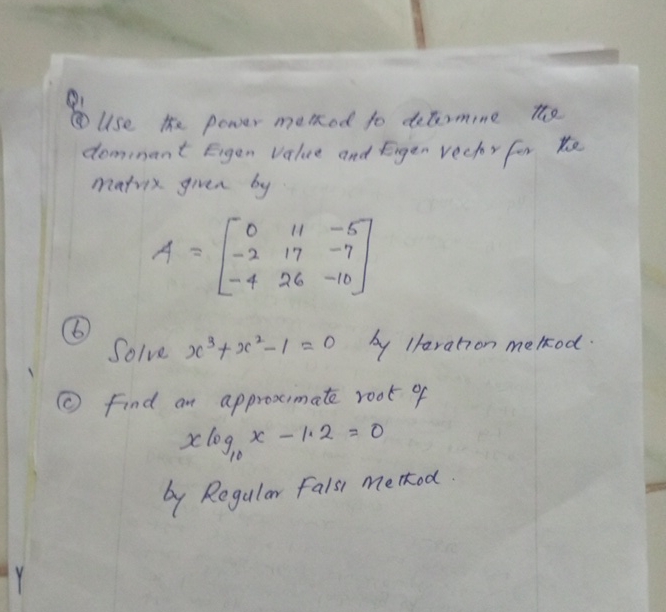 Q1
(a) Use the power method to determine the
dominant Eigen value and Eigen vector for the
matrix given by
A = [0 11 -5
-2 17 -7
-4 26 -10]
(b) Solve x³+x²-1 = 0 by Iteration method.
(c) Find an approximate root of
x log₁₀ x - 1.2 = 0
by Regular Falsi Method.
Y